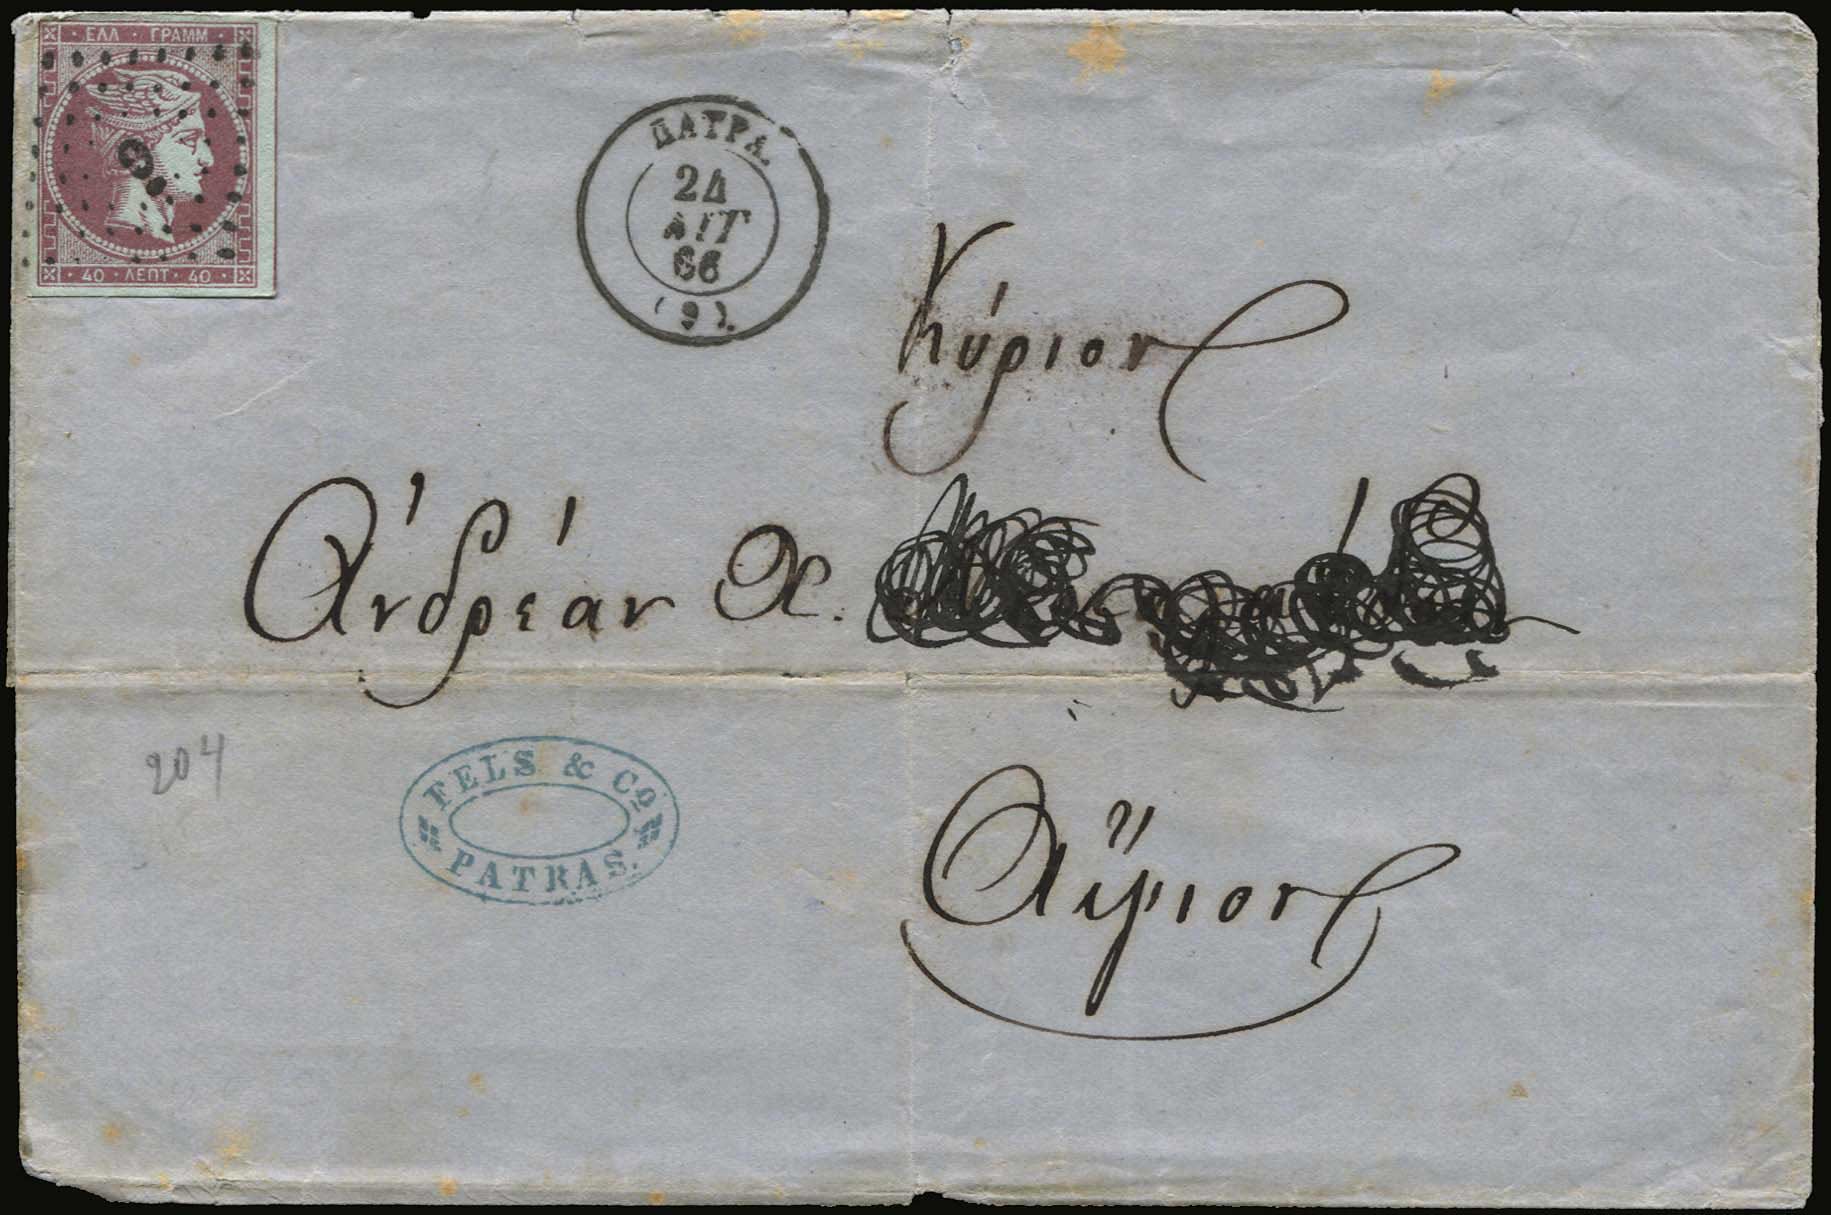 ΕΛΛ · ΓΡΑΜΜ
9
40 · ΛΕΠΤ · 40
ΠΑΤΡΑ
24
ΑΥΓ
66
(9)
Κύριον
Ἀνδρέαν Χ.
Αἴγιον
204
FELS & Co
PATRAS.